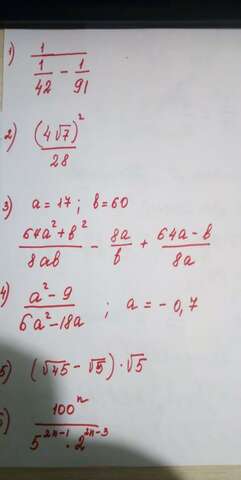 1) 1 / (1/42 - 1/91)
2) (4√7)² / 28
3) a = 17 ; b = 60
(64a² + b²) / 8ab - 8a / b + (64a - b) / 8a
4) (a² - 9) / (6a² - 18a) ; a = - 0,7
5) (√45 - √5) · √5
6) 100ⁿ / (5²ⁿ⁻¹ · 2²ⁿ⁻³)